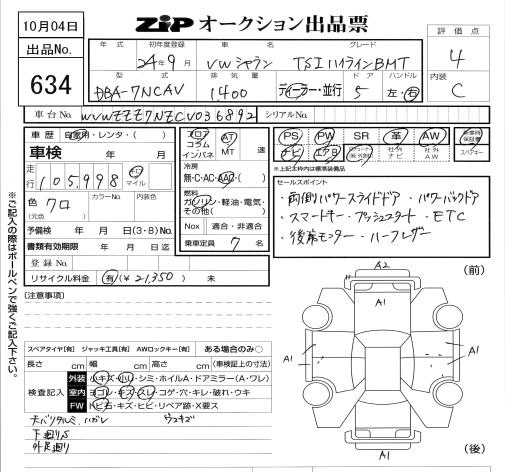 10月04日
ZIP オークション出品票
評価点
出品No.
634
年式
初年度登録
車名
グレード
24年9月
VWシャラン
TSIハイラインBMT
4
型式
排気量
ドア
ハンドル
DBA-7NCAV
1,400
ディーラー・並行
5
左・右
内装
C
車台No.
WVWZZZ7NZCV036892
シリアルNo.
車歴
自家用・レンタ・( )
車検
年 月
走行
105,998
キロ
マイル
色
クロ
(元色)
カラーNo.
内装色
予備検
年 月 日(3・8)No.
書類有効期限
年 月 日迄
登録No.
リサイクル料金
有(¥21,350)
未
フロア
コラム
インパネ
AT
MT
速
冷房
無・C・AC・AAC・( )
燃料
ガソリン・軽油・電気・
その他( )
Nox
適合・非適合
乗車定員
7
名
PS
PW
SR
革
AW
ナビ
エアB
社外
ナビ
社外
A.W
保証書
スペアキー
※上記太枠内は標準装備品
セールスポイント
・両側パワースライドドア・パワーバックドア
・スマートキー・プッシュスタート・ETC
・後席モニター・ハーフレザー
※ご記入の際はボールペンで強くご記入下さい。
[注意事項]
スペアタイヤ[有] ジャッキ工具[有] AWロックキー[有] ある場合のみ○
長さ cm 幅 cm 高さ cm (車検証上の寸法)
検査記入
外装
小キズ・小凹・シミ・ホイルA・ドアミラー(A・ワレ)
室内
ヨゴレ・キズ・スレ・コゲ・穴・キレ・破れ・ウキ
FW
トビ石・キズ・ヒビ・リペア跡・X要ス
下廻りS
外足廻り
(前)
A2
A1
A1
A1
A1
(後)